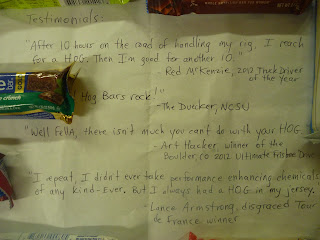 Testimonials:
"After 10 hours on the road of handling my rig, I reach
for a HOG. Then I'm good for another 10."
- Red McKenzie, 2012 Truck Driver
of the Year
"Hog Bars rock!"
- The Duecker, NCSU
"Well Fella, there isn't much you cant do with your HOG.
- Art Hacker winner of the
Boulder, CO 2012 Ultimate Frisbee Drive
"I repeat, I didn't ever take performance enhancing chemicals
of any kind-Ever. But I always had a HOG in my jersey.
- Lance Armstrong, disgraced Tour
de France winner